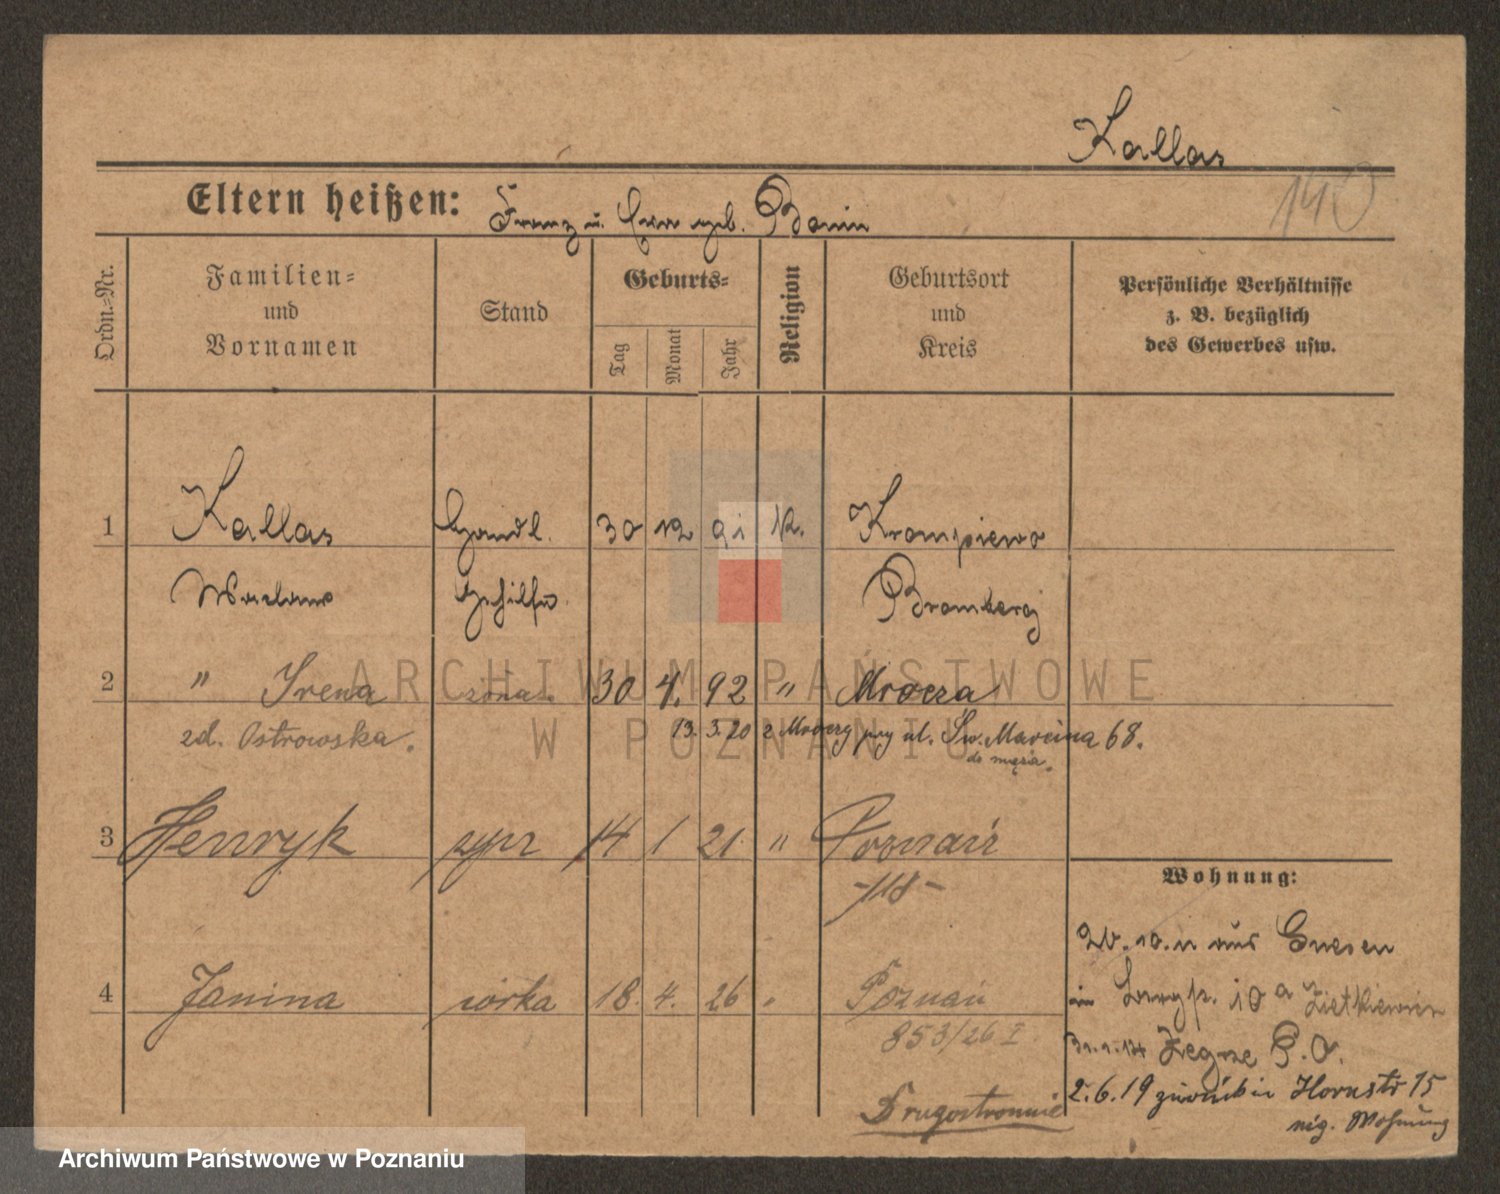 Kallas
140
Eltern heißen: Franz u. Eva geb. Bonin
Ordn.-Nr.
Familien-
und
Vornamen
Stand
Geburts-
Tag
Monat
Jahr
Religion
Geburtsort
und
Kreis
Persönliche Verhältnisse
z. B. bezüglich
des Gewerbes usw.
1 Kallas Handl. 30 12 91 k. Krompiewo
Waclaw Gehilfe Bromberg
2 " Irena żona 30 4. 92 " Mrocza
zd. Ostrowska. 13. 3. 20 z Mroczy przy ul. Św. Marcina 68.
do męża.
3 Henryk syn 14 1 21 " Poznań
-118-
4 Janina córka 18. 4. 26 " Poznań
853/26 I
Drugostronnie
Wohnung:
aus Gnesen
10a
Zegrze P.O.
2.6.19 zurück in Hornstr 15
eig. Wohnung
ARCHIWUM PAŃSTWOWE
W POZNANIU
Archiwum Państwowe w Poznaniu